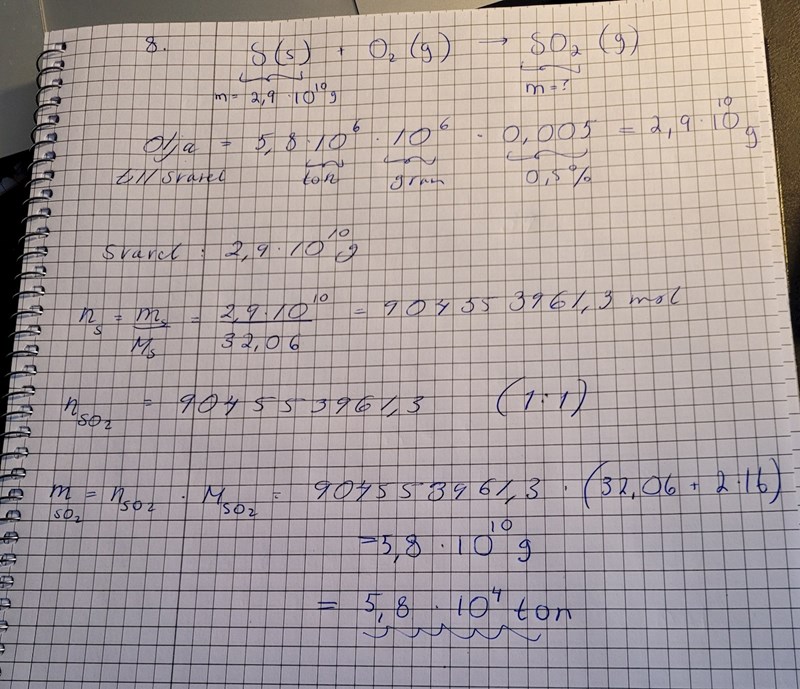 8. S(s) + O₂(g) → SO₂(g)
m = 2,9 · 10¹⁰ g m = ?
Olja = 5,8 · 10⁶ · 10⁶ · 0,005 = 2,9 · 10¹⁰ g
till svavel ton gram 0,5%
Svavel : 2,9 · 10¹⁰ g
nₛ = mₛ/Mₛ = 2,9 · 10¹⁰/32,06 = 904553961,3 mol
n_SO₂ = 904553961,3 (1:1)
m_SO₂ = n_SO₂ · M_SO₂ = 904553961,3 · (32,06 + 2·16)
= 5,8 · 10¹⁰ g
= 5,8 · 10⁴ ton